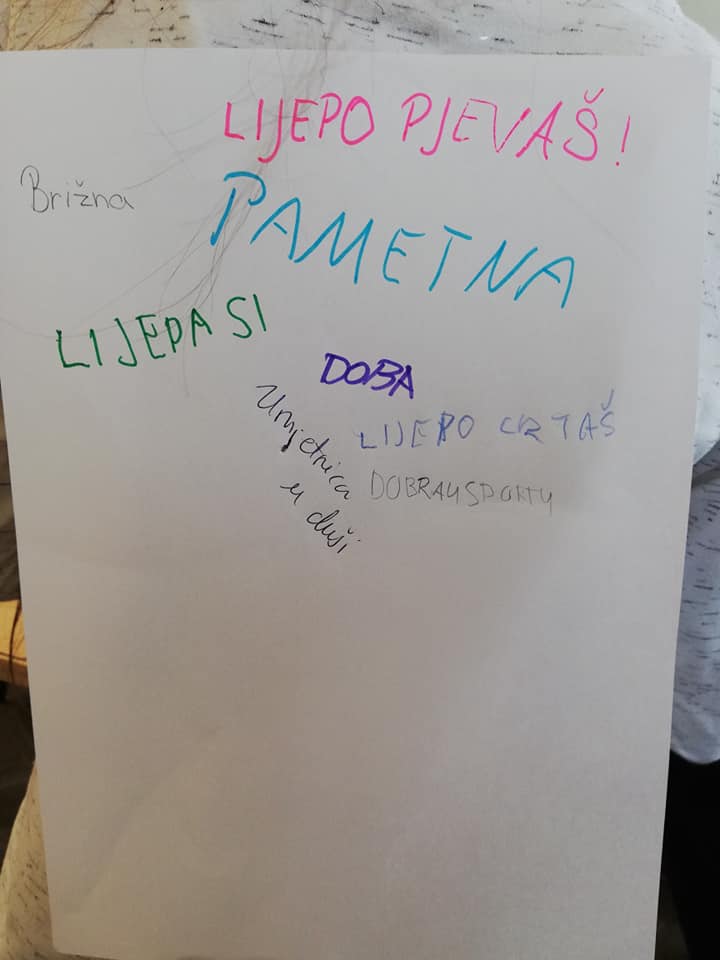 LIJEPO PJEVAŠ!
Brižna
PAMETNA
LIJEPA SI
DOBA
LIJEPO CRTAŠ
Umjetnica
u duši
DOBRA U SPORTU